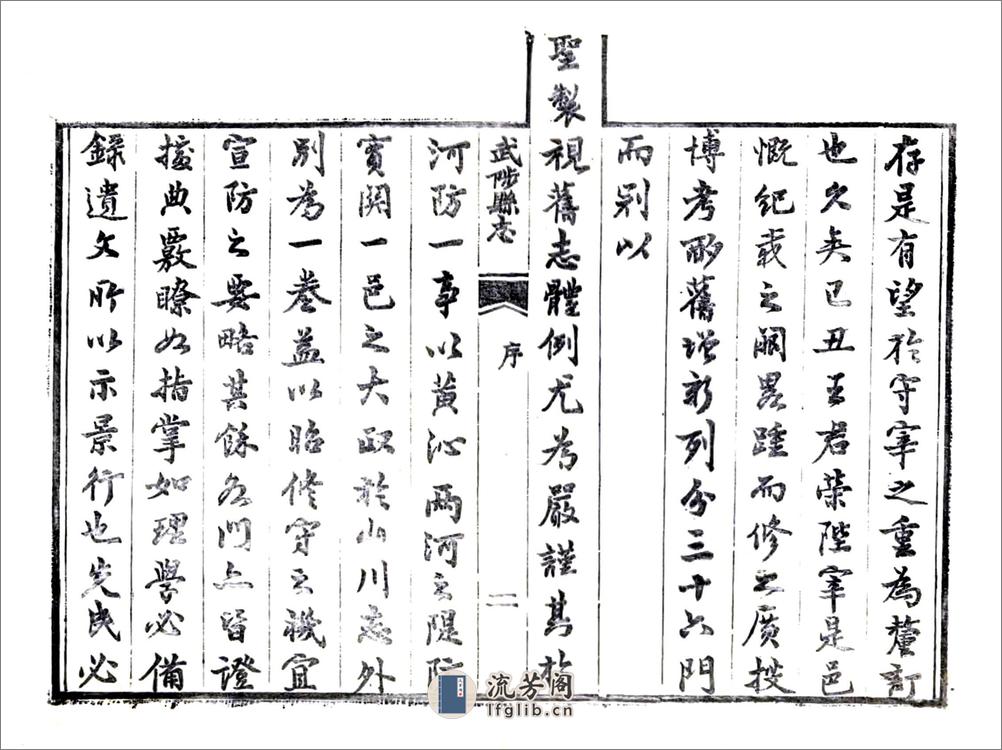 存是有望於守宰之重為釐訂
也久矣已丑王君榮陛宰是邑
慨紀載之闕畧踵而修之廣搜
博考郙舊增新列分三十六門
而别以
聖製視舊志體例尤為嚴謹其於
武陟縣志 序 二
河防一事以黄沁兩河之隄防
實関一邑之大政於山川志外
别為一卷益以昭修守之機宜
宣防之要略其餘各門亦皆證
援典覈瞭如指掌如理學必備
錄遺文所以示景行也先民必
流芳阁
lfglib.cn